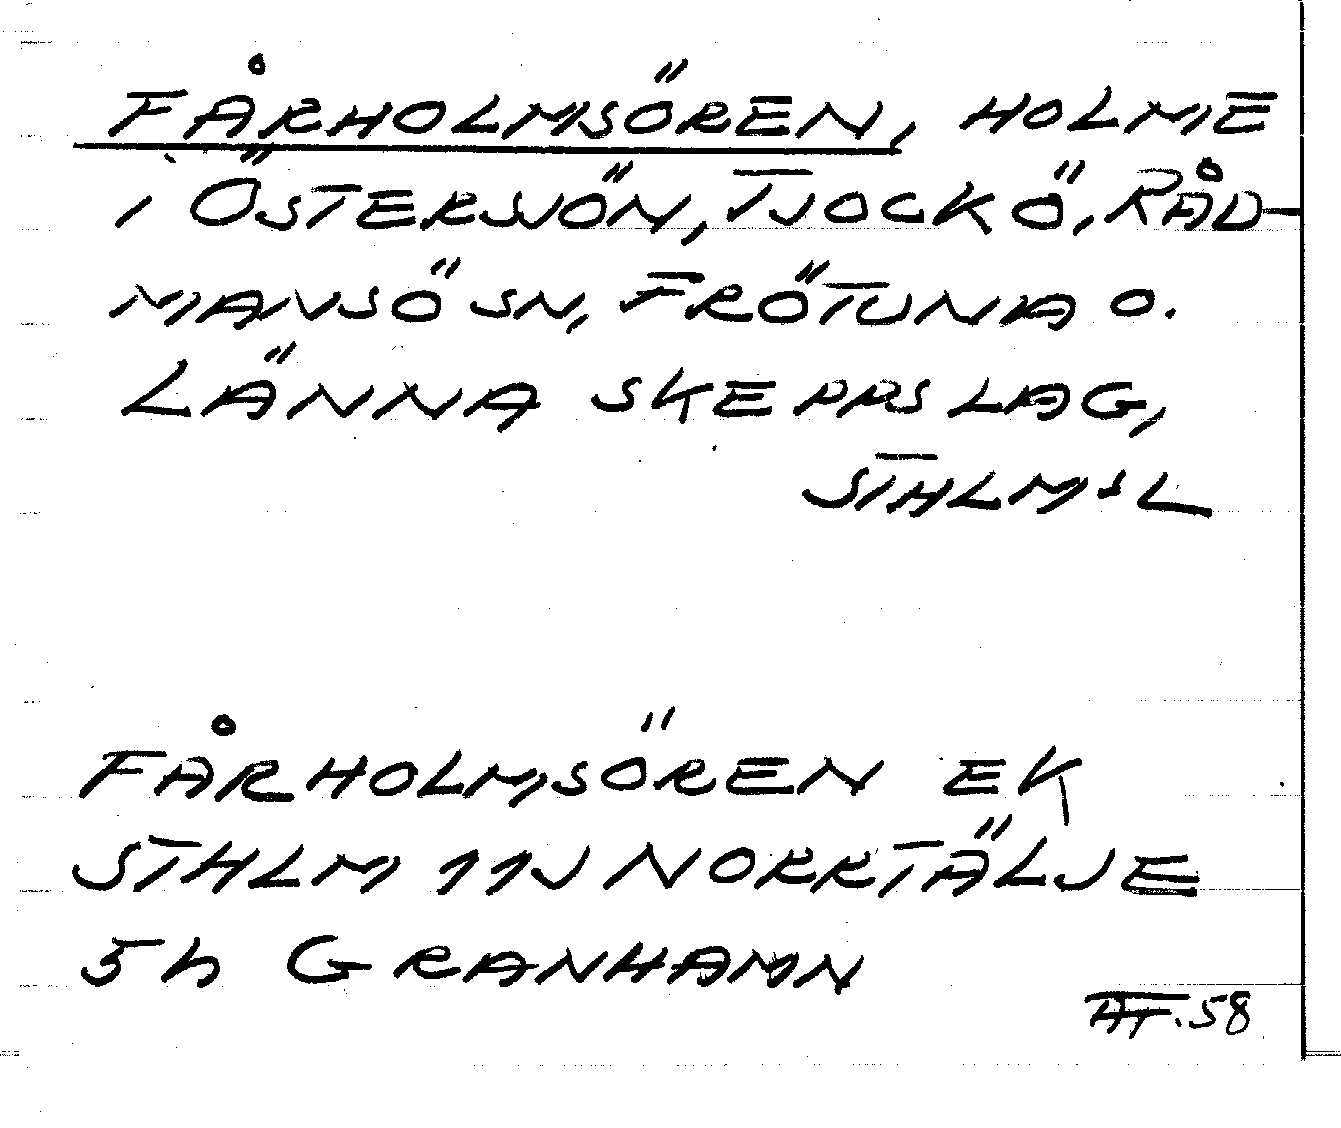 FÅRHOLMSÖREN, HOLME
I ÖSTERSJÖN, TJOCKÖ, RÅD-
MANSÖ SN, FRÖTUNA O.
LÄNNA SKEPPSLAG,
STHLMSL
FÅRHOLMSÖREN EK
STHLM 11J NORRTÄLJE
5h GRANHAMN
58